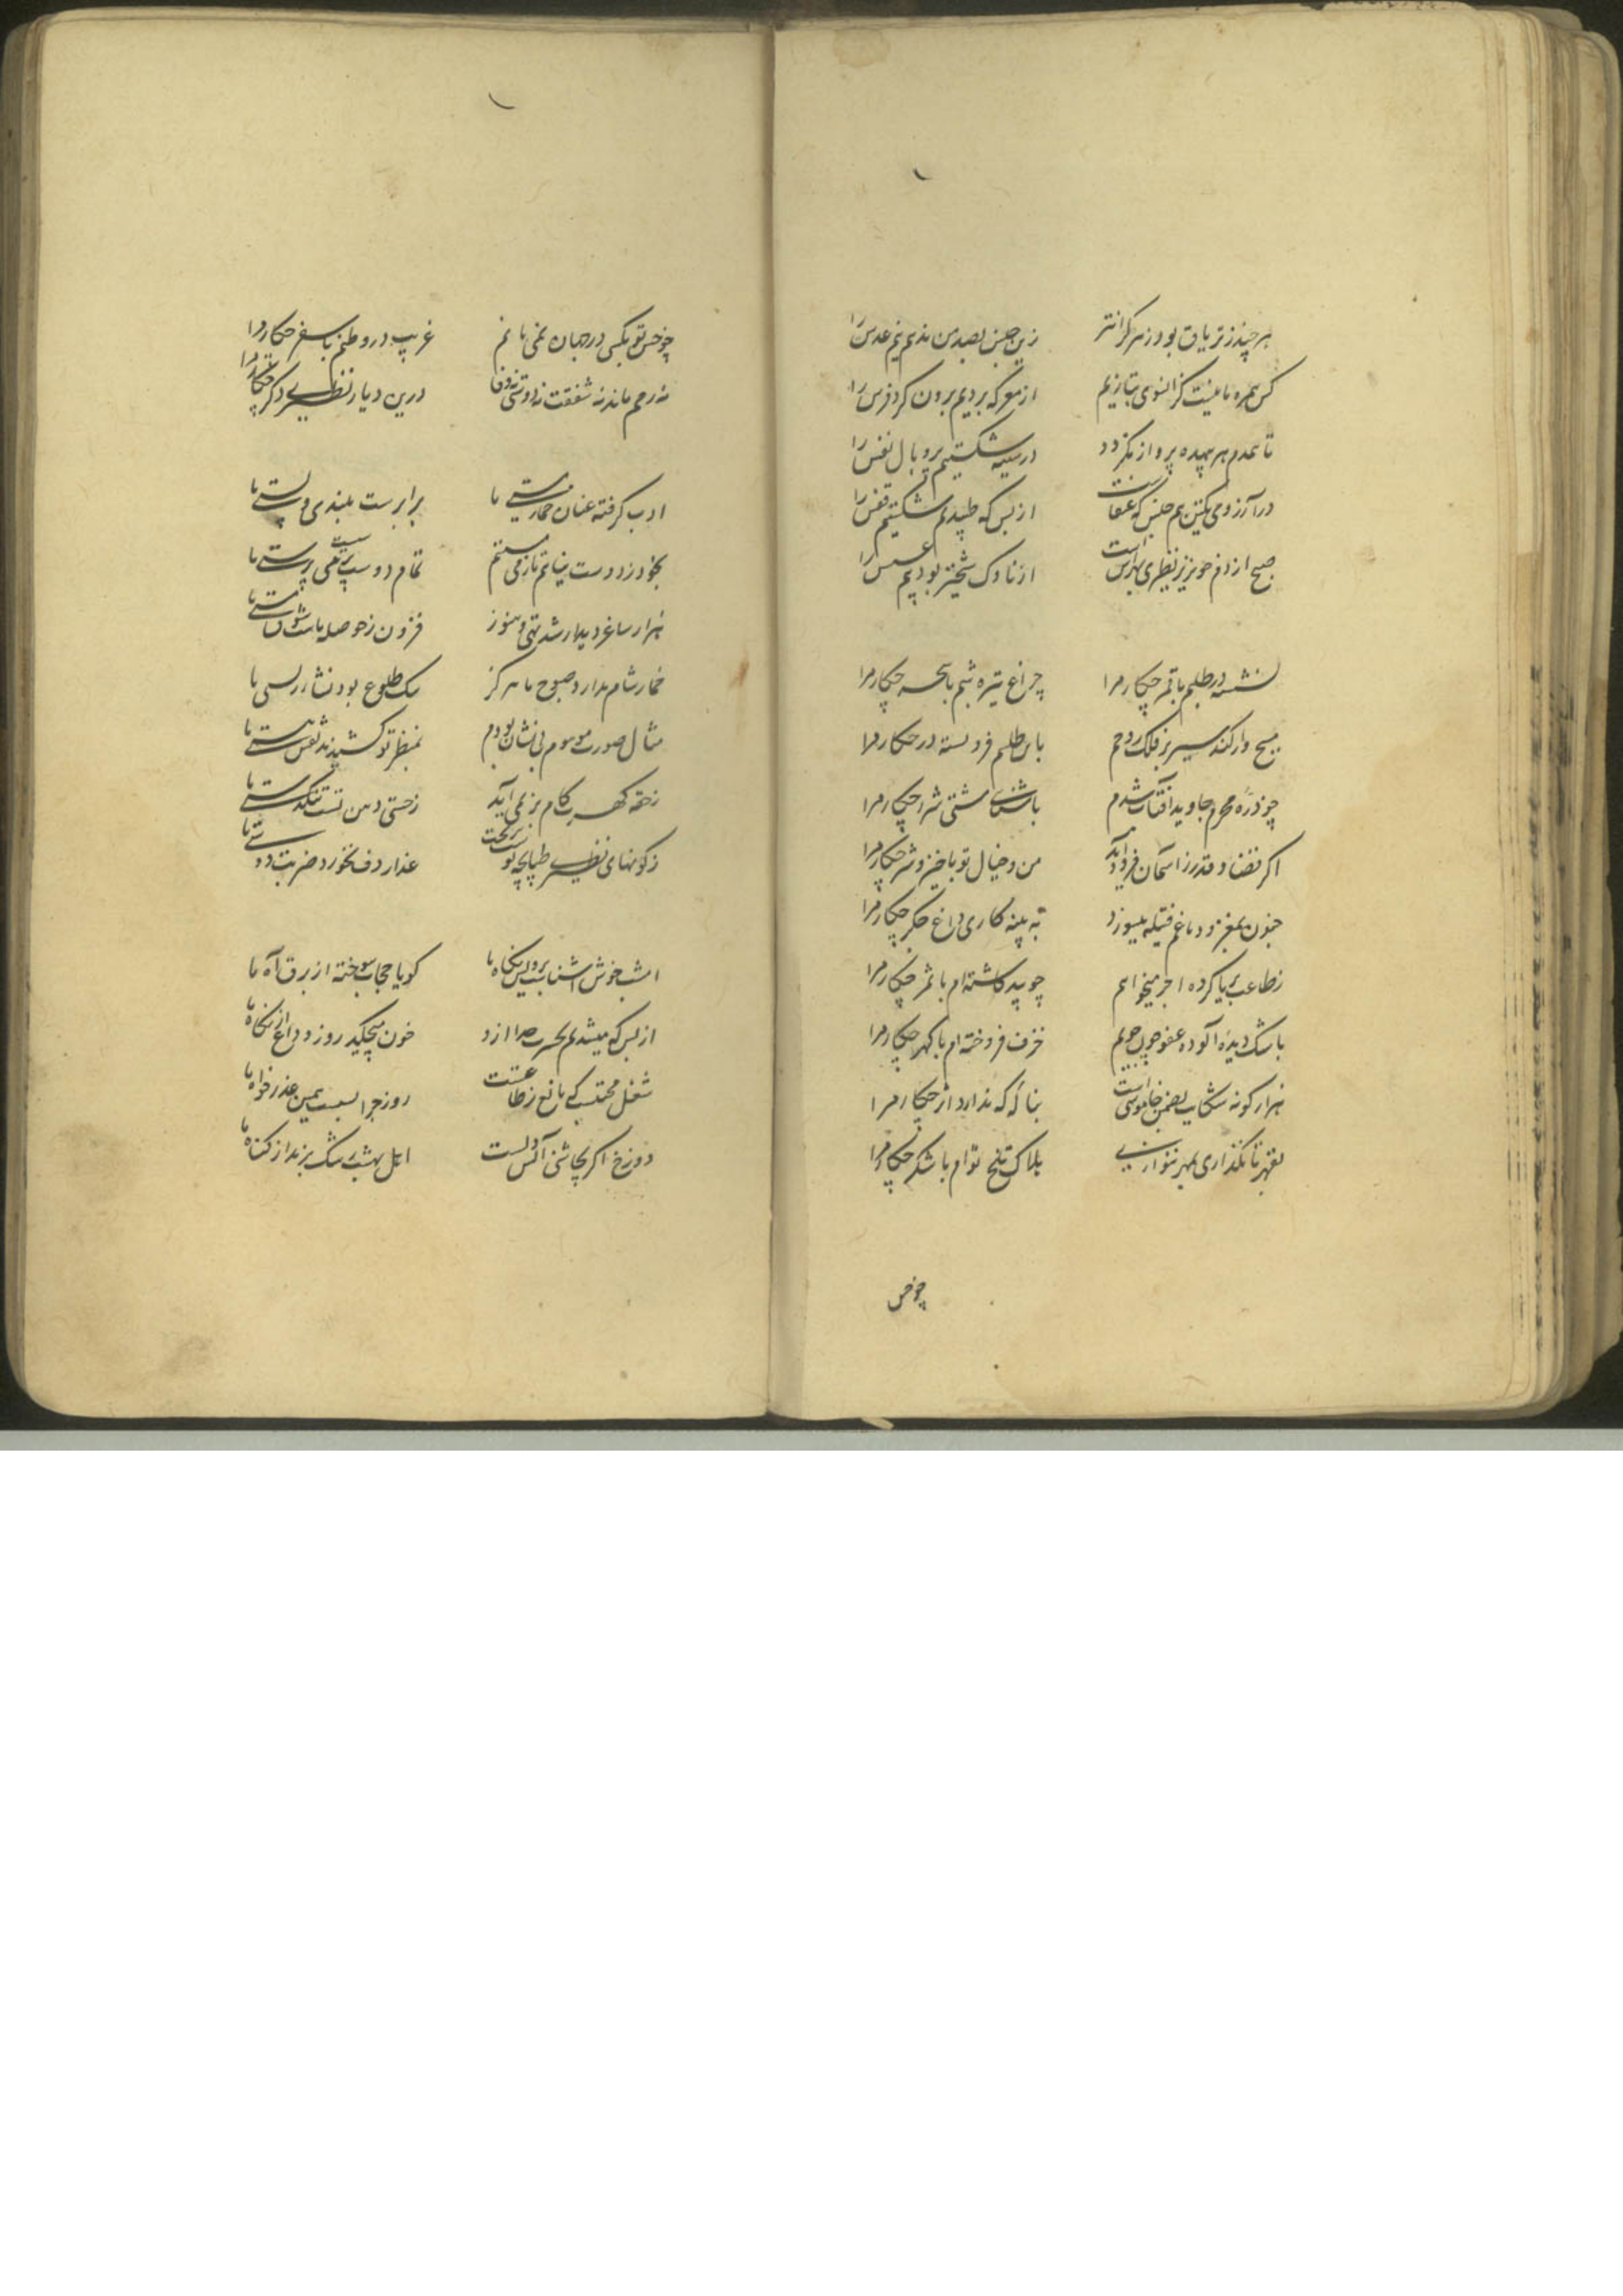 هر چند ز تریاق بود زهر گرانتر
زین جنس بصد من ندهم نیم عدس را
کس همره ما نیست کزانسوی بتازیم
از معرکه بردیم برون گرد فرس را
تا همدم هر بیهده پرواز نگردد
در سینه شکستیم پر و بال نفس را
در آرزوی یکتن هم جنس که عنقاست
از بس که طپیدیم شکستیم قفس را
صبح از دم خونریز نظیری بهراس است
از ناوک شبخیز بودیم عسس را
نشسته در ظلمم با قمر چکار مرا
چراغ تیره شبم با سحر چکار مرا
مسیح وار کند سیر بر فلک روحم
باین طلسم فرو بسته در چکار مرا
چو ذره محرم جاوید آفتاب شدم
مشتی شرر چکار مرا
اگر قضا و قدر ز آسمان فرود آید
من و خیال تو با خیر و شر چکار مرا
جنون بمغز و دماغم فتیله میسوزد
به پنبه کاری داغ جگر چکار مرا
ز طاعت بریا کرده اجر میخواهم
چو بید کاشته ام با ثمر چکار مرا
باشک دیده آلوده عفو چون جویم
خزف فروخته ام با گهر چکار مرا
هزار گونه شکایت بضمن خاموشیست
بناله که ندارد اثر چکار مرا
بقهر تا نگذاری بمهر ننوازی
هلاک تلخ توام با شکر چکار مرا
چو خس
چو خس تو بیکس در جهان نمی مانم
غریب در وطنم با سفر چکار مرا
نه رحم ماند نه شفقت نه دوستی نه وفا
درین دیار نظیری دگر چکار مرا
ادب گرفته عنان مستی ما
برابرست بلندی و پستی ما
بخود ز دوست نیائیم تا ز می مستیم
تمام دوست پرستیست می پرستی ما
هزار ساغر دیدار شد تهی و هنوز
فزون ز حوصله ماست شوق مستی ما
خمار شام ندارد صبوح ما هرگز
مثال صورت موهوم بی نشان بودیم
بمنظر تو کشیدند نقش هستی ما
ز حقه گهرت کام بر نمی آید
ز حقی دهن تست تنگدستی ما
عذار دف نخورد ضربت دو دستی ما
امشب خوش آشناست بروایش نگاه ما
گویا حجاب سوخته از برق آه ما
از بس که میشدیم بحسرت جدا ازو
خون میچکید روز وداع از نگاه ما
شغل محتسب کی مانع ز طاعتست
روز جزا بس است همین عذر خواه ما
دوزخ اگر بچاشنی آتش دلست
اهل بهشت رشک برند از گناه ما